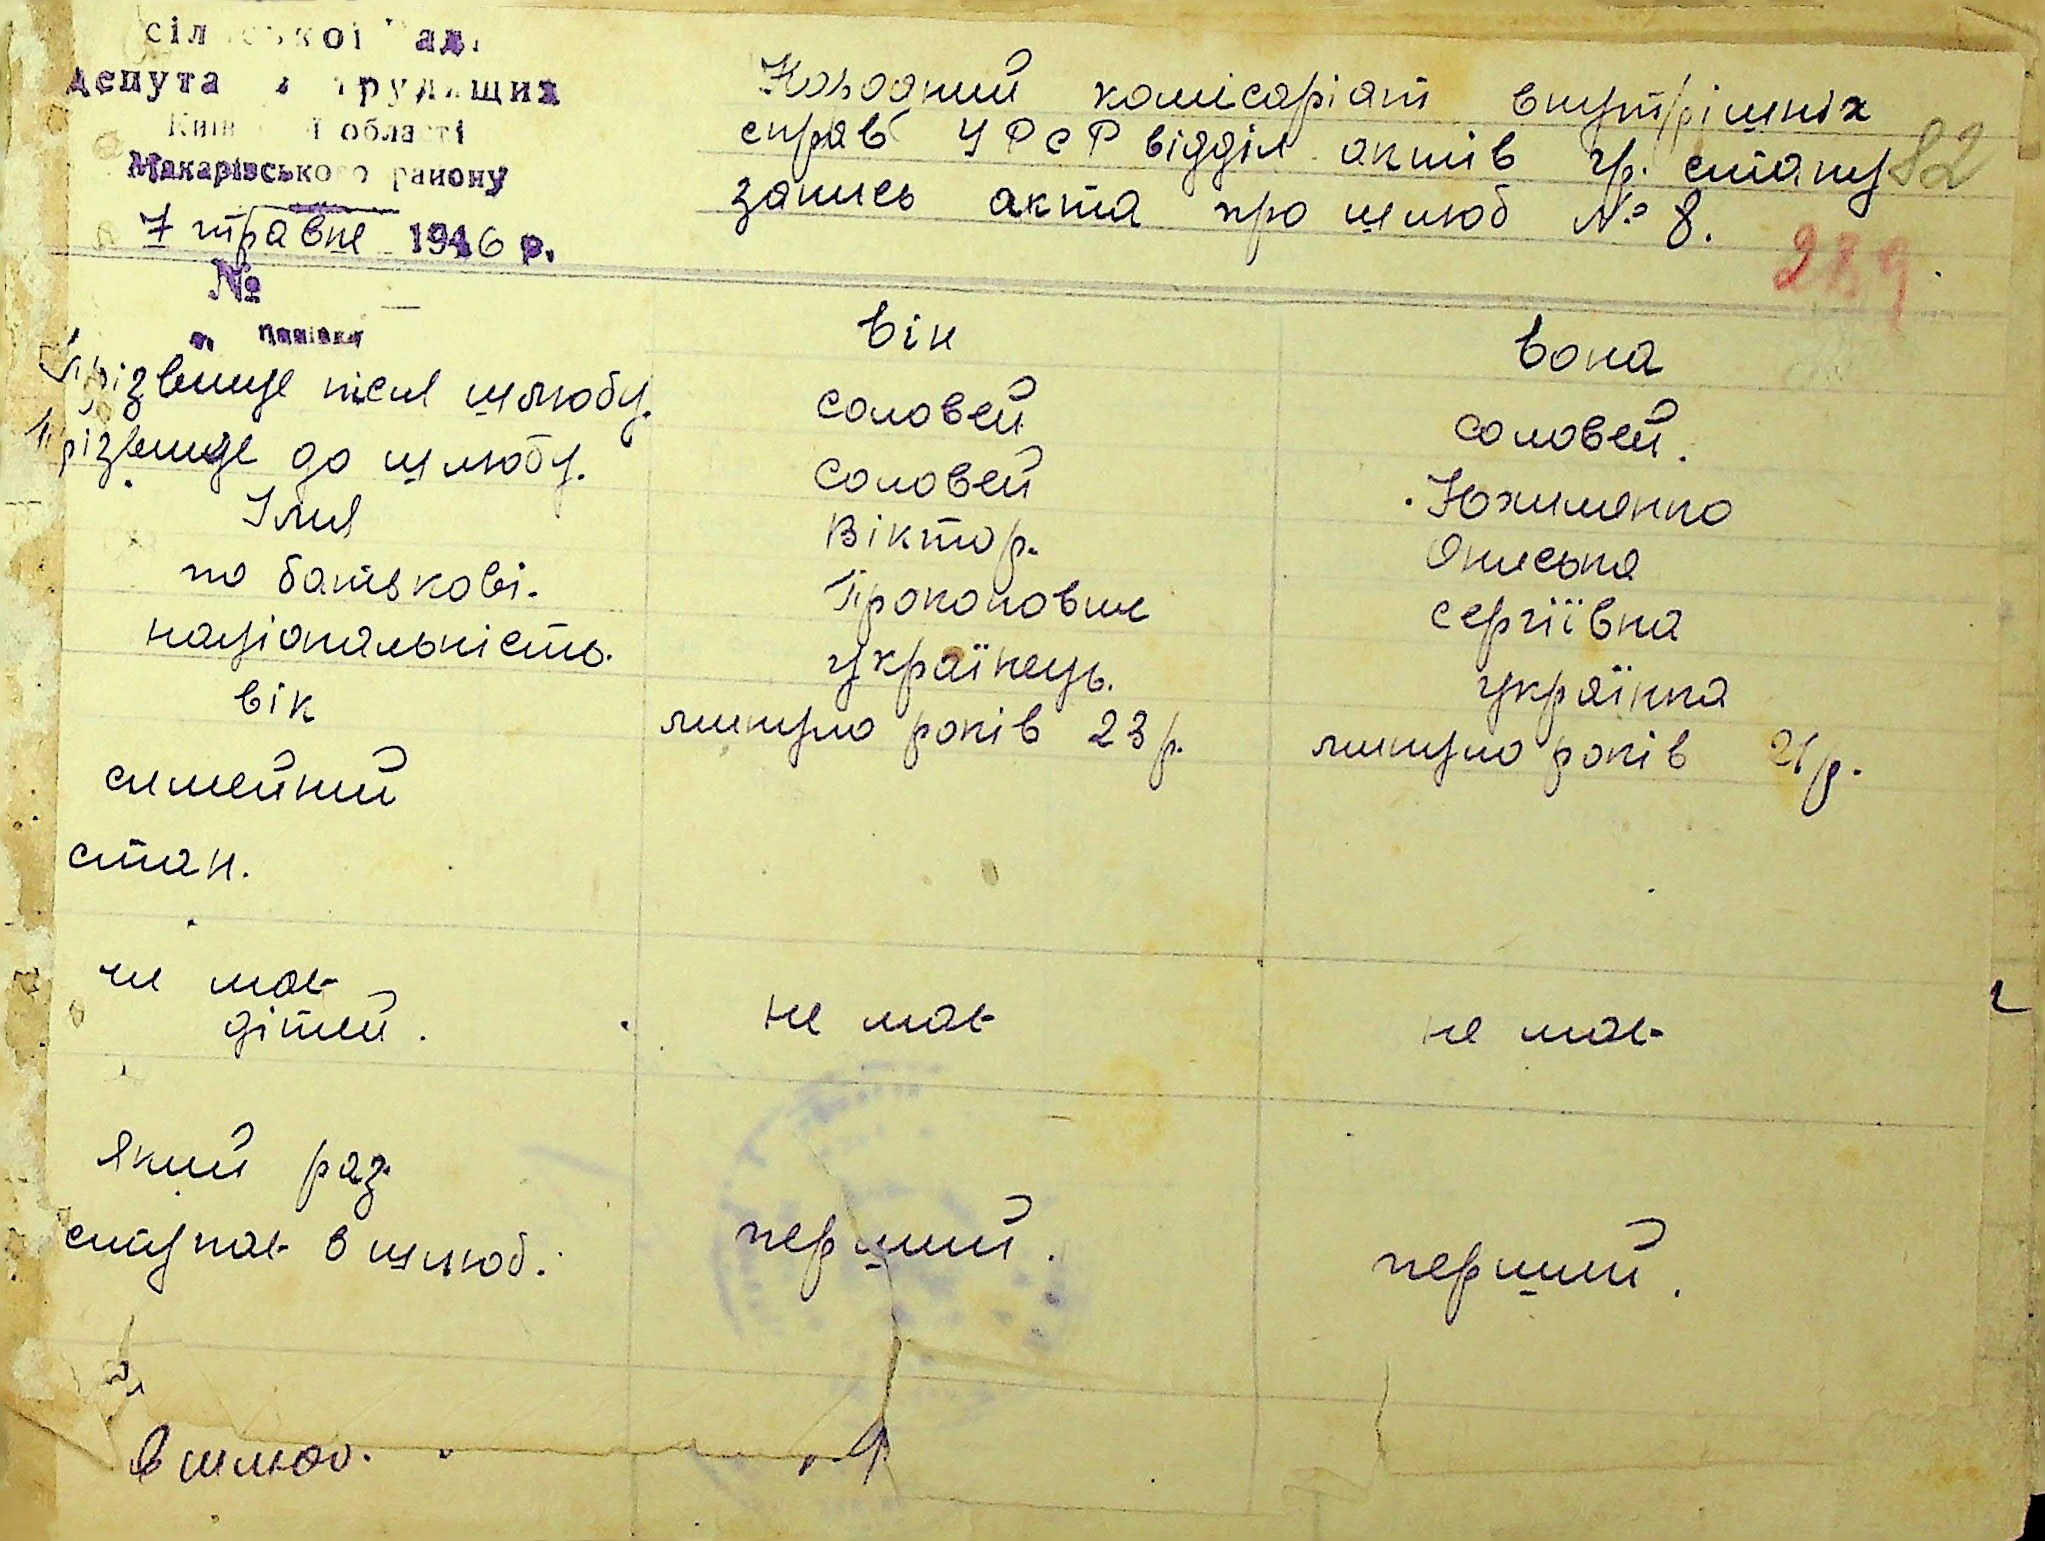 сільської Ради
депутатів трудящих
Київської області
Макарівського району
7 травня 1946 р.
№
Народний комісаріат внутрішніх
справ УРСР відділ актів гр. стану 82
запись акта про шлюб № 8.
289
він вона
Прізвище після шлюбу. Соловей Соловей.
Прізвище до шлюбу. Соловей Юхименко
Імя Віктор. Ониська
по батькові. Прокопович Сергіївна
національність. українець. українка
вік минуло років 23 р. минуло років 21 р.
симейний
стан.
чи має
дітей. не має не має
який раз
ступає в шлюб. перший. перший.
в шлюб.